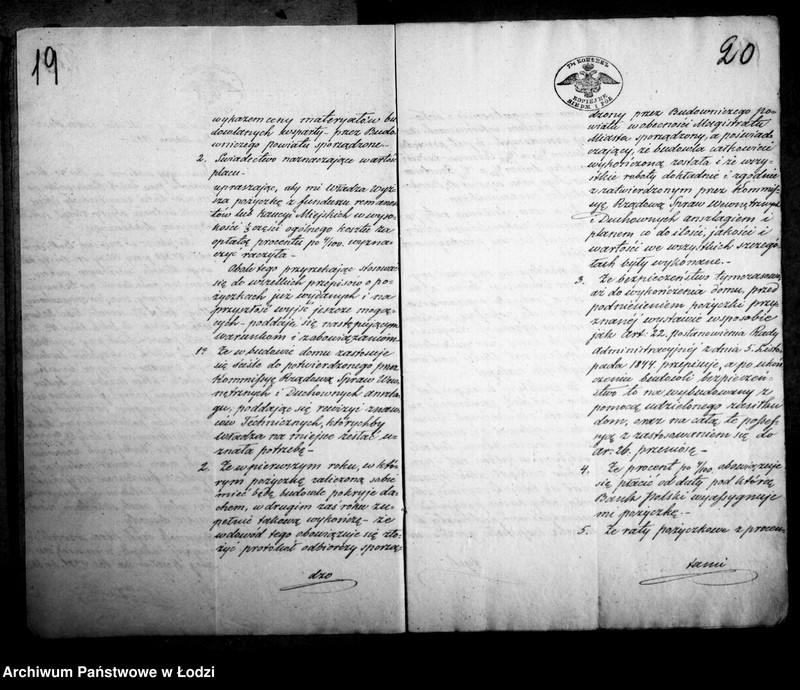 19
wykazem ceny materyałów bu
dowlanych wsparty przez Budo
wniczego powiatu sporządzone
2. Świadectwo naznaczające wartość
placu
upraszając, aby mi władza wyż
sza pożyczkę z funduszu remanen
tów lub kaucyi Miejskich w wyso
kości części ogólnego kosztu za
opłatą procentu po /100. wyzna
czyć raczyła.
Obok tego przyrzekając stosować
się do wszelkich przepisów o po
życzkach już wydanych i na
przyszłość wyjść jeszcze mogą
cych poddaję się następującym
warunkom i zobowiązaniom
1o Że w budowie domu zastosuję
się ściśle do potwierdzonego przez
Kommissyę Rządową Spraw Wew
nętrznych i Duchownych anszla
gu, poddając się rewizyi znaw
ców Technicznych, których by
władza na miejsce zesłać u
znała potrzebę
2. Że w pierwszym roku, w któ
rym pożyczkę zaliczoną sobie
mieć będę budowle pokryję da
chem, w drugim zaś roku zu
pełnie takową wykończę że
w dowód tego obowiązuję się zło
żyć protokół odbiorczy sporzą
dzo
20
7½ KOPIEJEK
KOPIEJEK
SIEDM I PÓŁ
dzony przez Budowniczego Po
wiatu w obecności Magistratu
Miasta sporządzony, a poświad
czający, że budowla całkowicie
wykończoną została i że wszy
stkie roboty dokładnie i zgodnie
z zatwierdzonym przez Kommis
syę Rządową Spraw Wewnętrznych
i Duchownych anszlagiem i
planem co do ilości, jakości i
wartości we wszystkich szczegó
łach były wykonane.
3. Że bezpieczeństwo tymczasowe
aż do wykończenia domu, przed
podniesieniem pożyczki przy
znanej wystawię w sposobie
jak Art. 22. postanowienia Rady
Administracyjnej z dnia 5. Listo
pada 1844 przepisuje, a po ukoń
czeniu budowli bezpieczeń
stwo to na wybudowany z
pomocą udzielonego zasiłku
dom, oraz na całą tę posses
syą z zastosowaniem się do
ar: 26. przeniosę
4. Że procent po /100 obowiązuję
się płacić od daty pod którą
Bank Polski wyassygnuje
mi pożyczkę.
5. Że raty pożyczkowe z procen
tami
Archiwum Państwowe w Łodzi